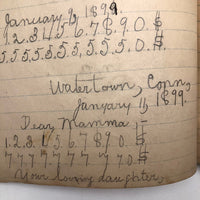 January 9, 1899.
1.2.3.4.5.6.7.8.9.0.$
5.5.5.5.5.5.5.5.5.0.$
Watertown, Conn,
January 11, 1899.
Dear Mamma
1.2.3.4.5.6.7.8.9.0.$
7.7.7.7.7.7.7.7.7.0.$
Your loving daughter,